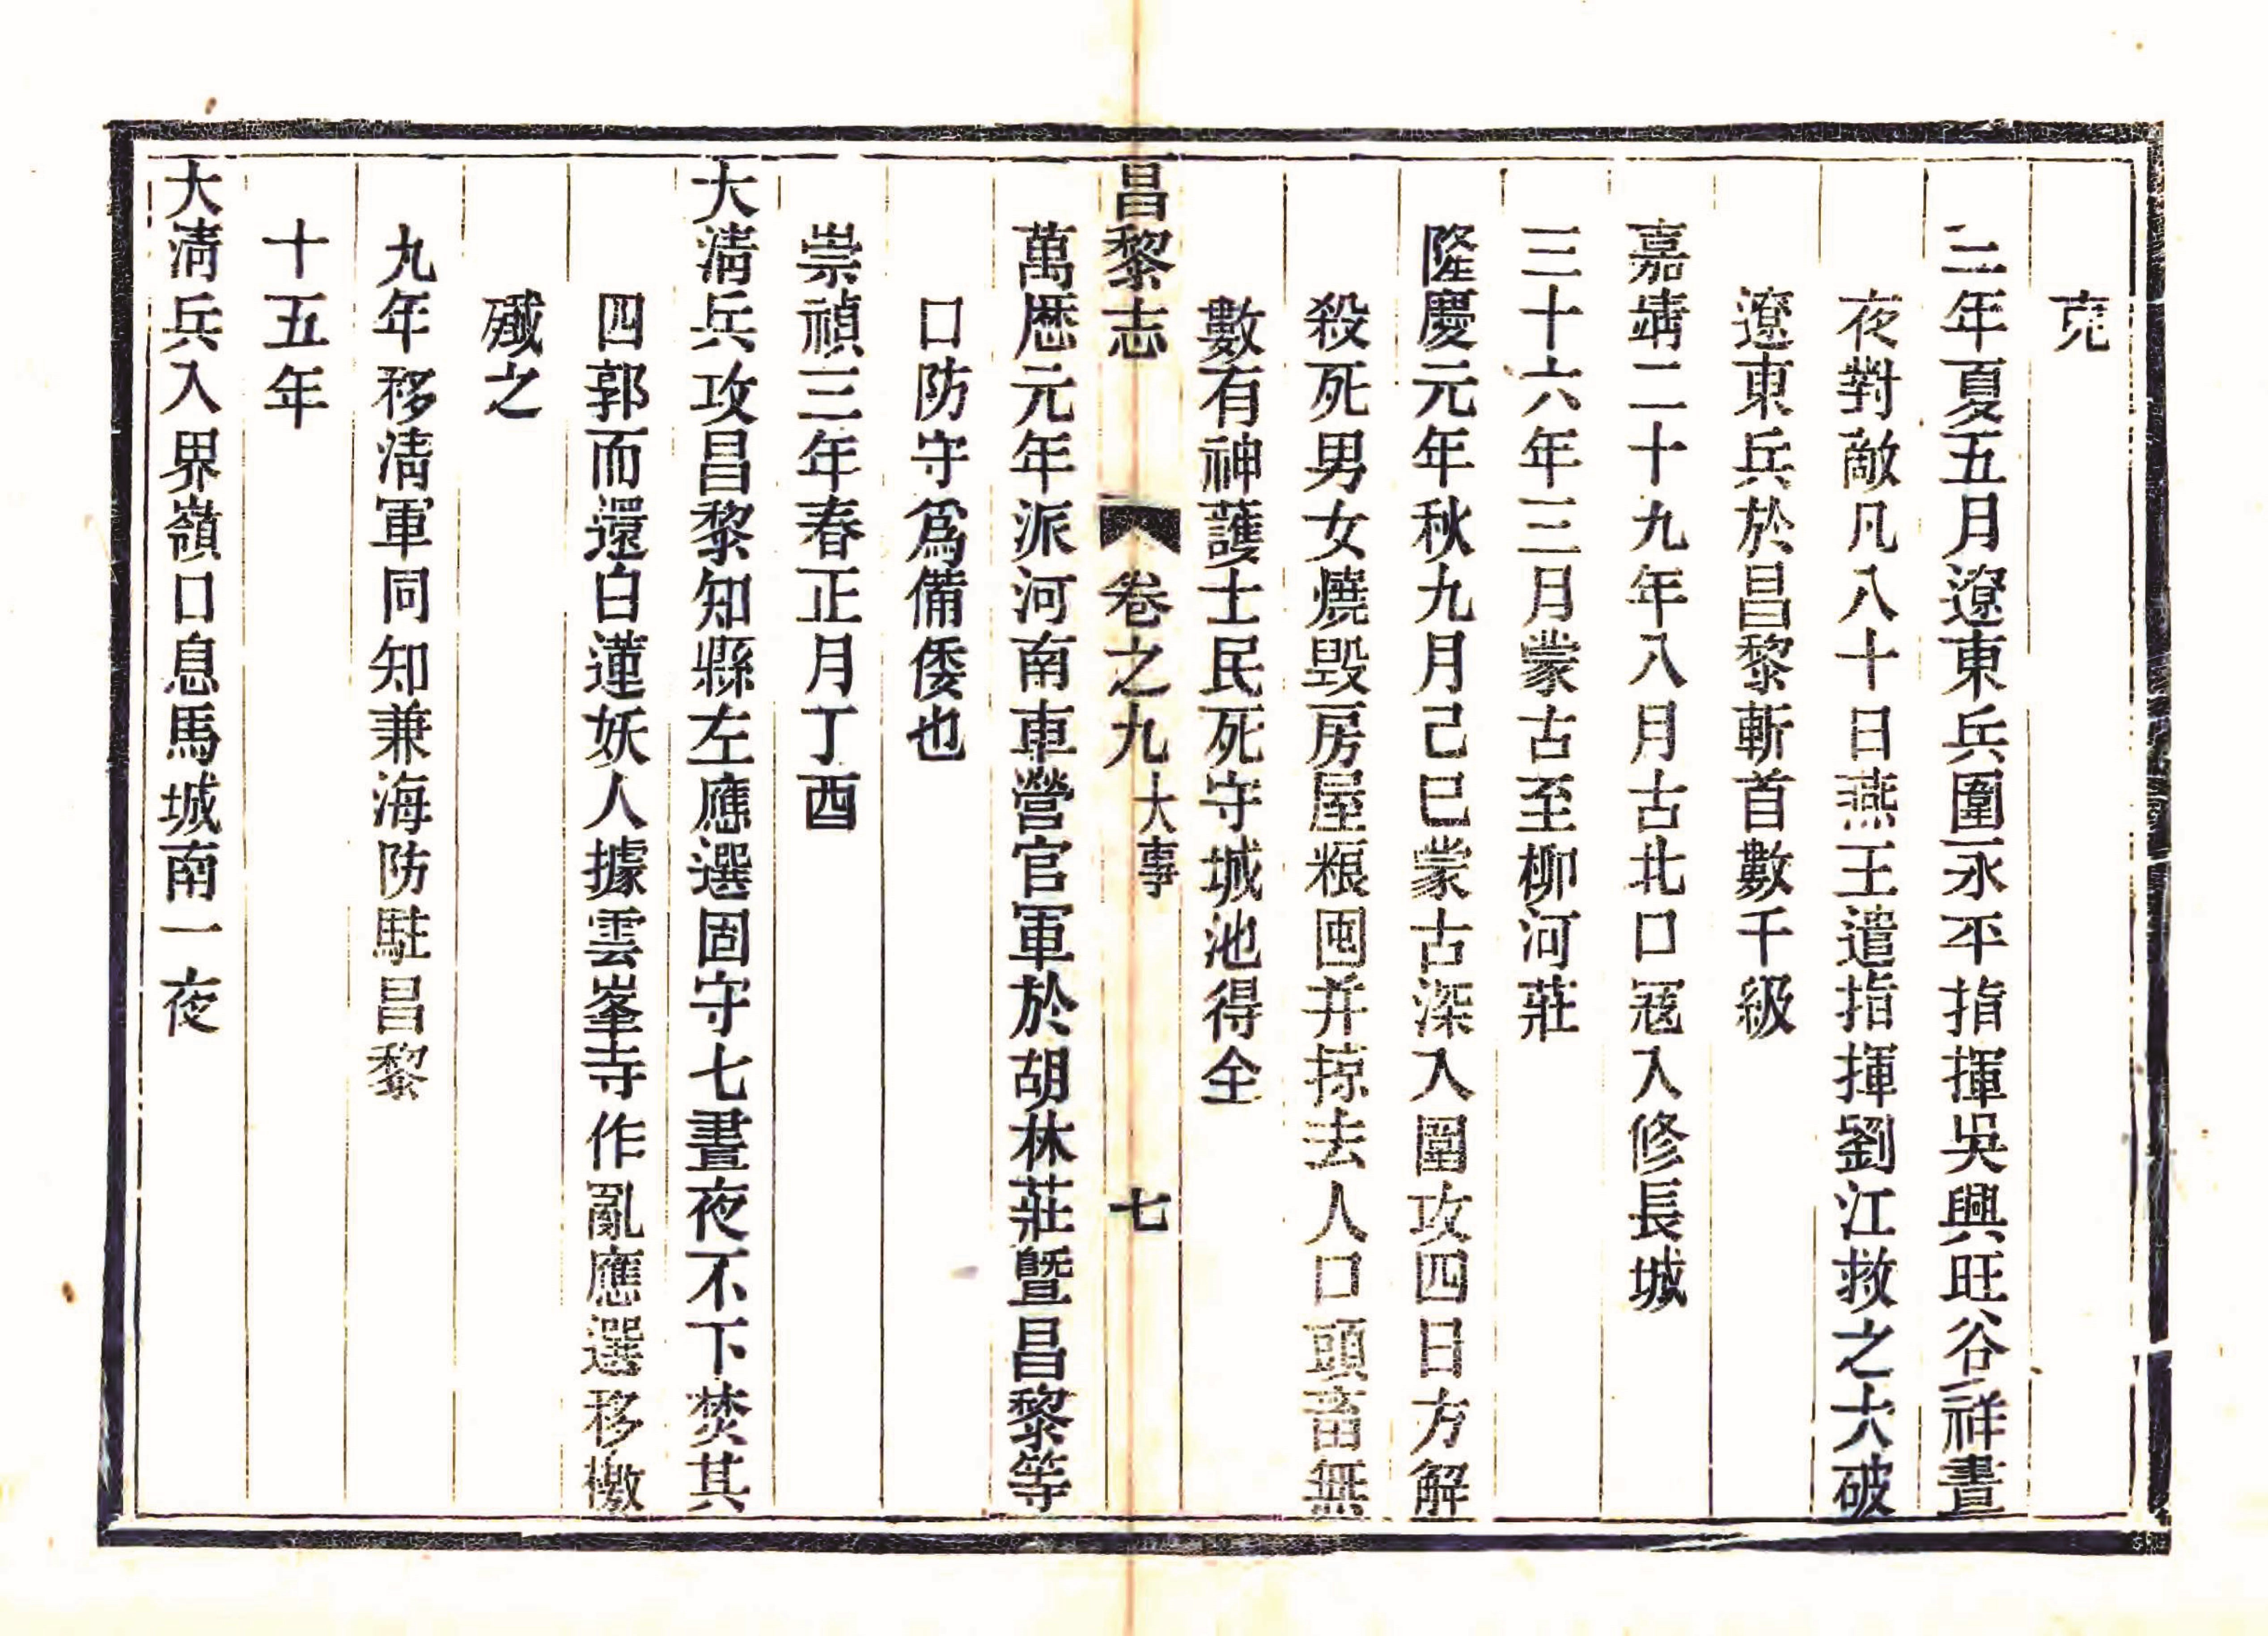 克
二年夏五月遼東兵圍永平指揮吳興旺谷祥晝
夜對敵凡八十日燕王遣指揮劉江救之大破
遼東兵於昌黎斬首數千級
嘉靖二十九年八月古北口冦入修長城
三十六年三月蒙古至柳河莊
隆慶元年秋九月己巳蒙古深入圍攻四日方解
殺死男女燒毀房屋粮囤并掠去人口頭畜無
數有神護士民死守城池得全
昌黎志 卷之九 大事 七
萬歷元年派河南車營官軍於胡林莊暨昌黎等
口防守爲備倭也
崇禎三年春正月丁酉
大淸兵攻昌黎知縣左應選固守七晝夜不下焚其
四郭而還白蓮妖人據雲峯寺作亂應選移檄
殱之
九年移淸軍同知兼海防駐昌黎
十五年
大淸兵入界嶺口息馬城南一夜